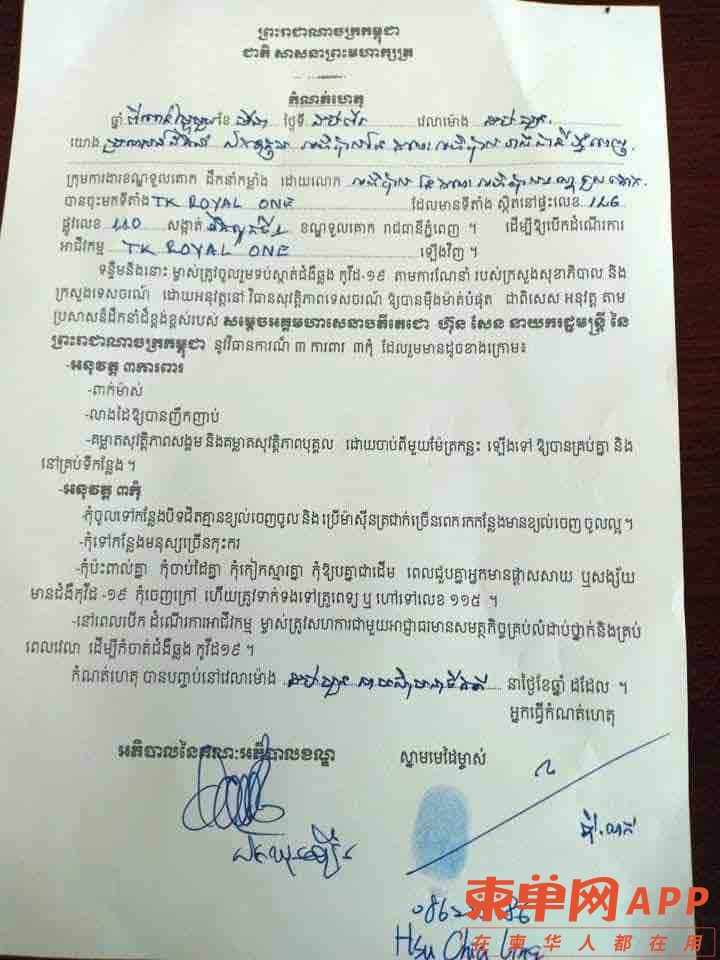 ព្រះរាជាណាចក្រកម្ពុជា
ជាតិ សាសនា ព្រះមហាក្សត្រ
កំណត់ហេតុ
ឆ្នាំ ខែ ថ្ងៃទី វេលាម៉ោង
យោង
ក្រុមការងារខណ្ឌទួលគោក ដឹកនាំកម្លាំង ដោយលោក
បានចុះមកទីតាំង TK ROYAL ONE ដែលមានទីតាំង ស្ថិតនៅផ្ទះលេខ
ផ្លូវលេខ សង្កាត់ ខណ្ឌទួលគោក រាជធានីភ្នំពេញ ។ ដើម្បីឱ្យបើកដំណើរការ
អាជីវកម្ម TK ROYAL ONE ឡើងវិញ ។
ទន្ទឹមនឹងនោះ ម្ចាស់ត្រូវចូលរួមទប់ស្កាត់ជំងឺឆ្លង កូវីដ-១៩ តាមការណែនាំ របស់ក្រសួងសុខាភិបាល និង
ក្រសួងទេសចរណ៍ ដោយអនុវត្តនៅ វិធានសុវត្ថិភាពទេសចរណ៍ ឱ្យបានម៉ឺងម៉ាត់បំផុត ជាពិសេស អនុវត្ត តាម
ប្រសាសន៍ដឹកនាំដ៏ខ្ពង់ខ្ពស់របស់ សម្តេចអគ្គមហាសេនាបតីតេជោ ហ៊ុន សែន នាយករដ្ឋមន្ត្រី នៃ
ព្រះរាជាណាចក្រកម្ពុជា នូវវិធានការណ៍ ៣ ការពារ ៣កុំ ដែលរួមមានដូចខាងក្រោម៖
-អនុវត្ត ៣ការពារ
-ពាក់ម៉ាស់
-លាងដៃឱ្យបានញឹកញាប់
-គម្លាតសុវត្ថិភាពសង្គម និងគម្លាតសុវត្ថិភាពបុគ្គល ដោយចាប់ពីមួយម៉ែត្រកន្លះ ឡើងទៅ ឱ្យបានគ្រប់គ្នា និង
នៅគ្រប់ទីកន្លែង ។
-អនុវត្ត ៣កុំ
-កុំចូលទៅកន្លែងបិទជិតគ្មានខ្យល់ចេញចូល និង ប្រើម៉ាស៊ីនត្រជាក់ច្រើនពេក រកកន្លែងមានខ្យល់ចេញ ចូលល្អ ។
-កុំទៅកន្លែងមនុស្សច្រើនកុះករ
-កុំប៉ះពាល់គ្នា កុំចាប់ដៃគ្នា កុំកៀកស្មារគ្នា កុំឱបគ្នាជាដើម ពេលជួបគ្នាអ្នកមានផ្តាសសាយ ឬសង្ស័យ
មានជំងឺកូវីដ -១៩ កុំចេញក្រៅ ហើយត្រូវទាក់ទងទៅគ្រូពេទ្យ ឬ ហៅទៅលេខ ១១៥ ។
-នៅពេលបើក ដំណើរការអាជីវកម្ម ម្ចាស់ត្រូវសហការជាមួយអាជ្ញាធរមានសមត្ថកិច្ចគ្រប់លំដាប់ថ្នាក់និងគ្រប់
ពេលវេលា ដើម្បីកំចាត់ជំងឺឆ្លង កូវីដ១៩ ។
កំណត់ហេតុ បានបញ្ចប់នៅវេលាម៉ោង នាថ្ងៃខែឆ្នាំ ដដែល ។
អ្នកធ្វើកំណត់ហេតុ
អភិបាលនៃគណៈអភិបាលខណ្ឌ ស្នាមមេដៃម្ចាស់
Hsu Chia Ling
柬单网APP
在柬华人都在用